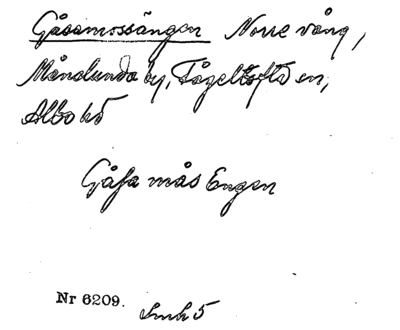 Gåsamossängen Norre vång,
Månslunda by, Fågeltofta sn,
Albo hd
Gåsa mås Engen
Nr 6209. Smh 5